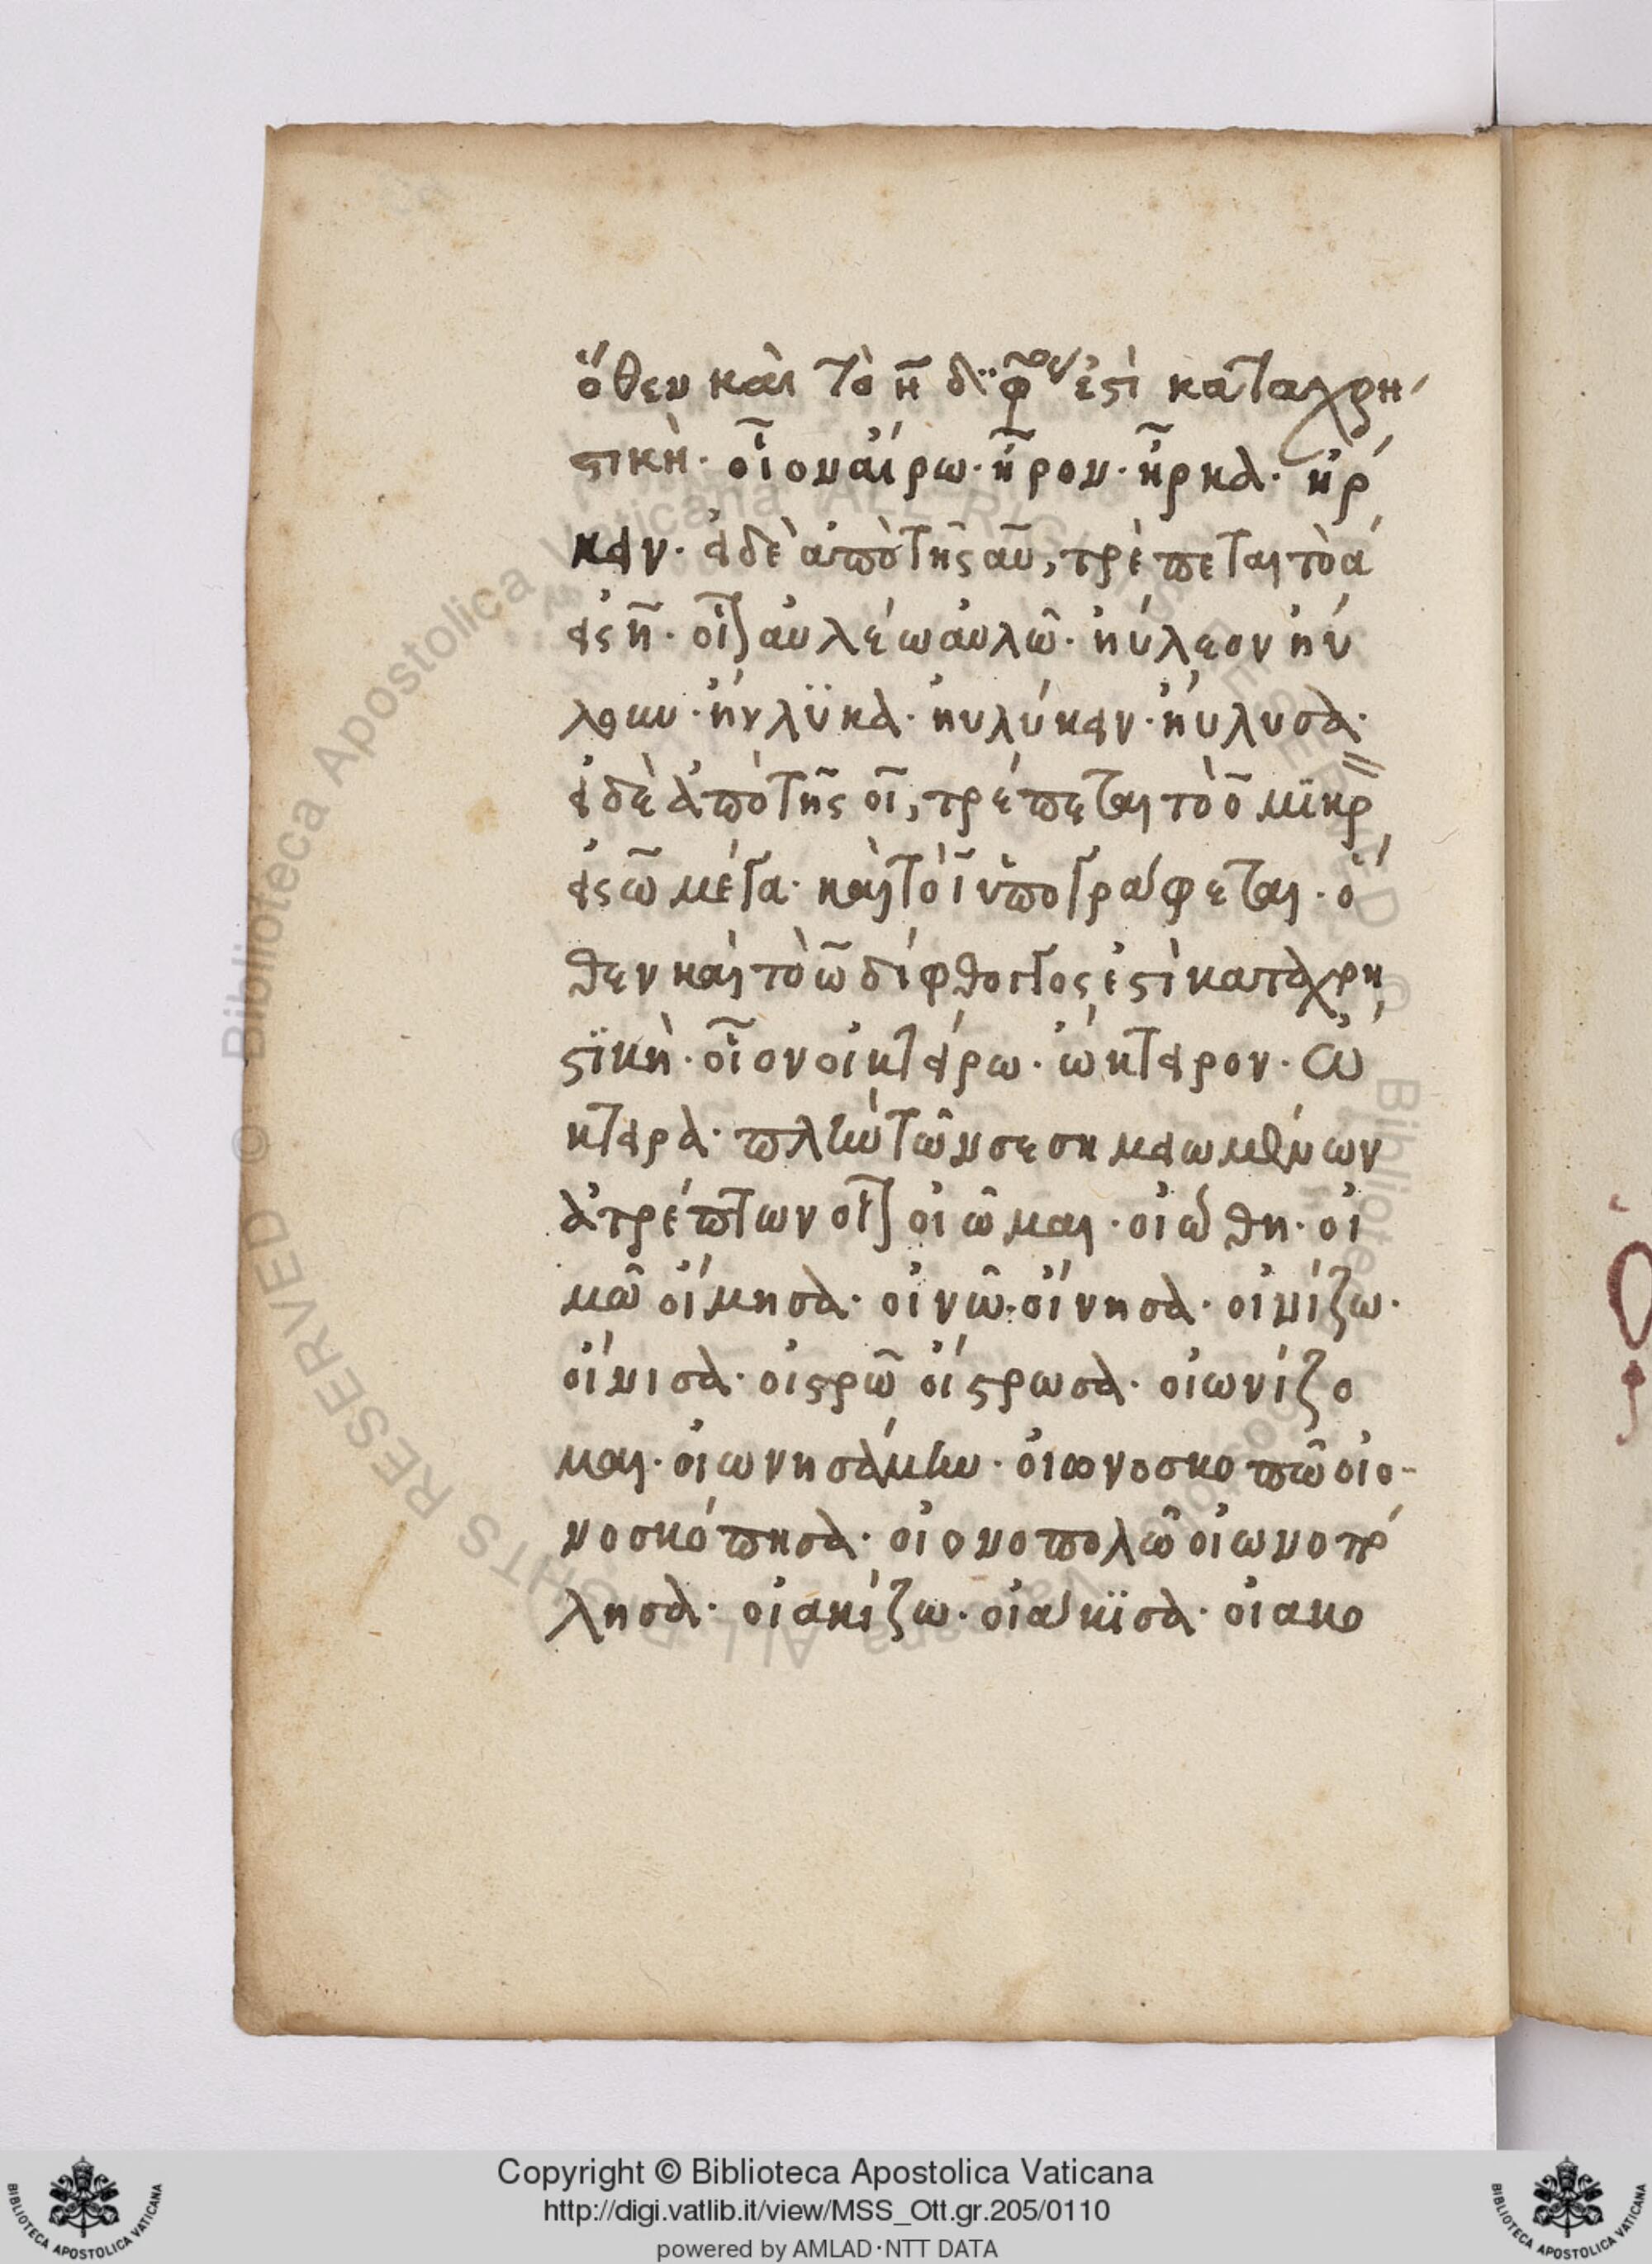 ὅθεν καὶ τὸ η̄ δίφθογγός ἐστι καταχρη
στικὴ· οἷον αἴρω· ἦρον· ἦρκα· ἤρ
κειν· εἰ δὲ ἀπὸ τῆς αυ, τρέπεται τὸ α
εἰς η̄· οἷον αὐλέω αὐλῶ· ηὔλεον ηὔ
λουν· ηὔλϋκα· ηὐλύκειν· ηὔλυσα·
εἰ δὲ ἀπὸ τῆς οι, τρέπεται τὸ ο̄ μϊκρ
εἰς ω̄ μέγα· καὶ τὸ ῑ ὑπογράφεται· ὅ
θεν καὶ τὸ ω̄ δίφθογγος ἐστὶ καταχρη
στϊκὴ· οἷον οἰκτείρω· ὤκτειρον· ὤ
κτειρα· πλὴν τῶν σεσημειωμένων
ἀτρέπτων οἷον οἰῶμαι· οἰώθη· οἰ
μῶ οἴμησα· οἰνῶ· οἴνησα· οἰνίζω·
οἴνισα· οἰστρῶ οἴστρωσα· οἰωνίζο
μαι· οἰωνησάμην· οἰωνοσκοπῶ οἰο-
νοσκόπησα· οἰονοπολῶ οἰωνοπό
λησα· οἰακίζω· οἰάκϊσα· οἰακο
Copyright © Biblioteca Apostolica Vaticana
http://digi.vatlib.it/view/MSS_Ott.gr.205/0110
powered by AMLAD·NTT DATA